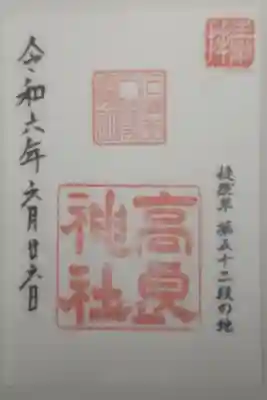 徒然草 第五十二段の地
高良
神社
令和六年六月廿六日